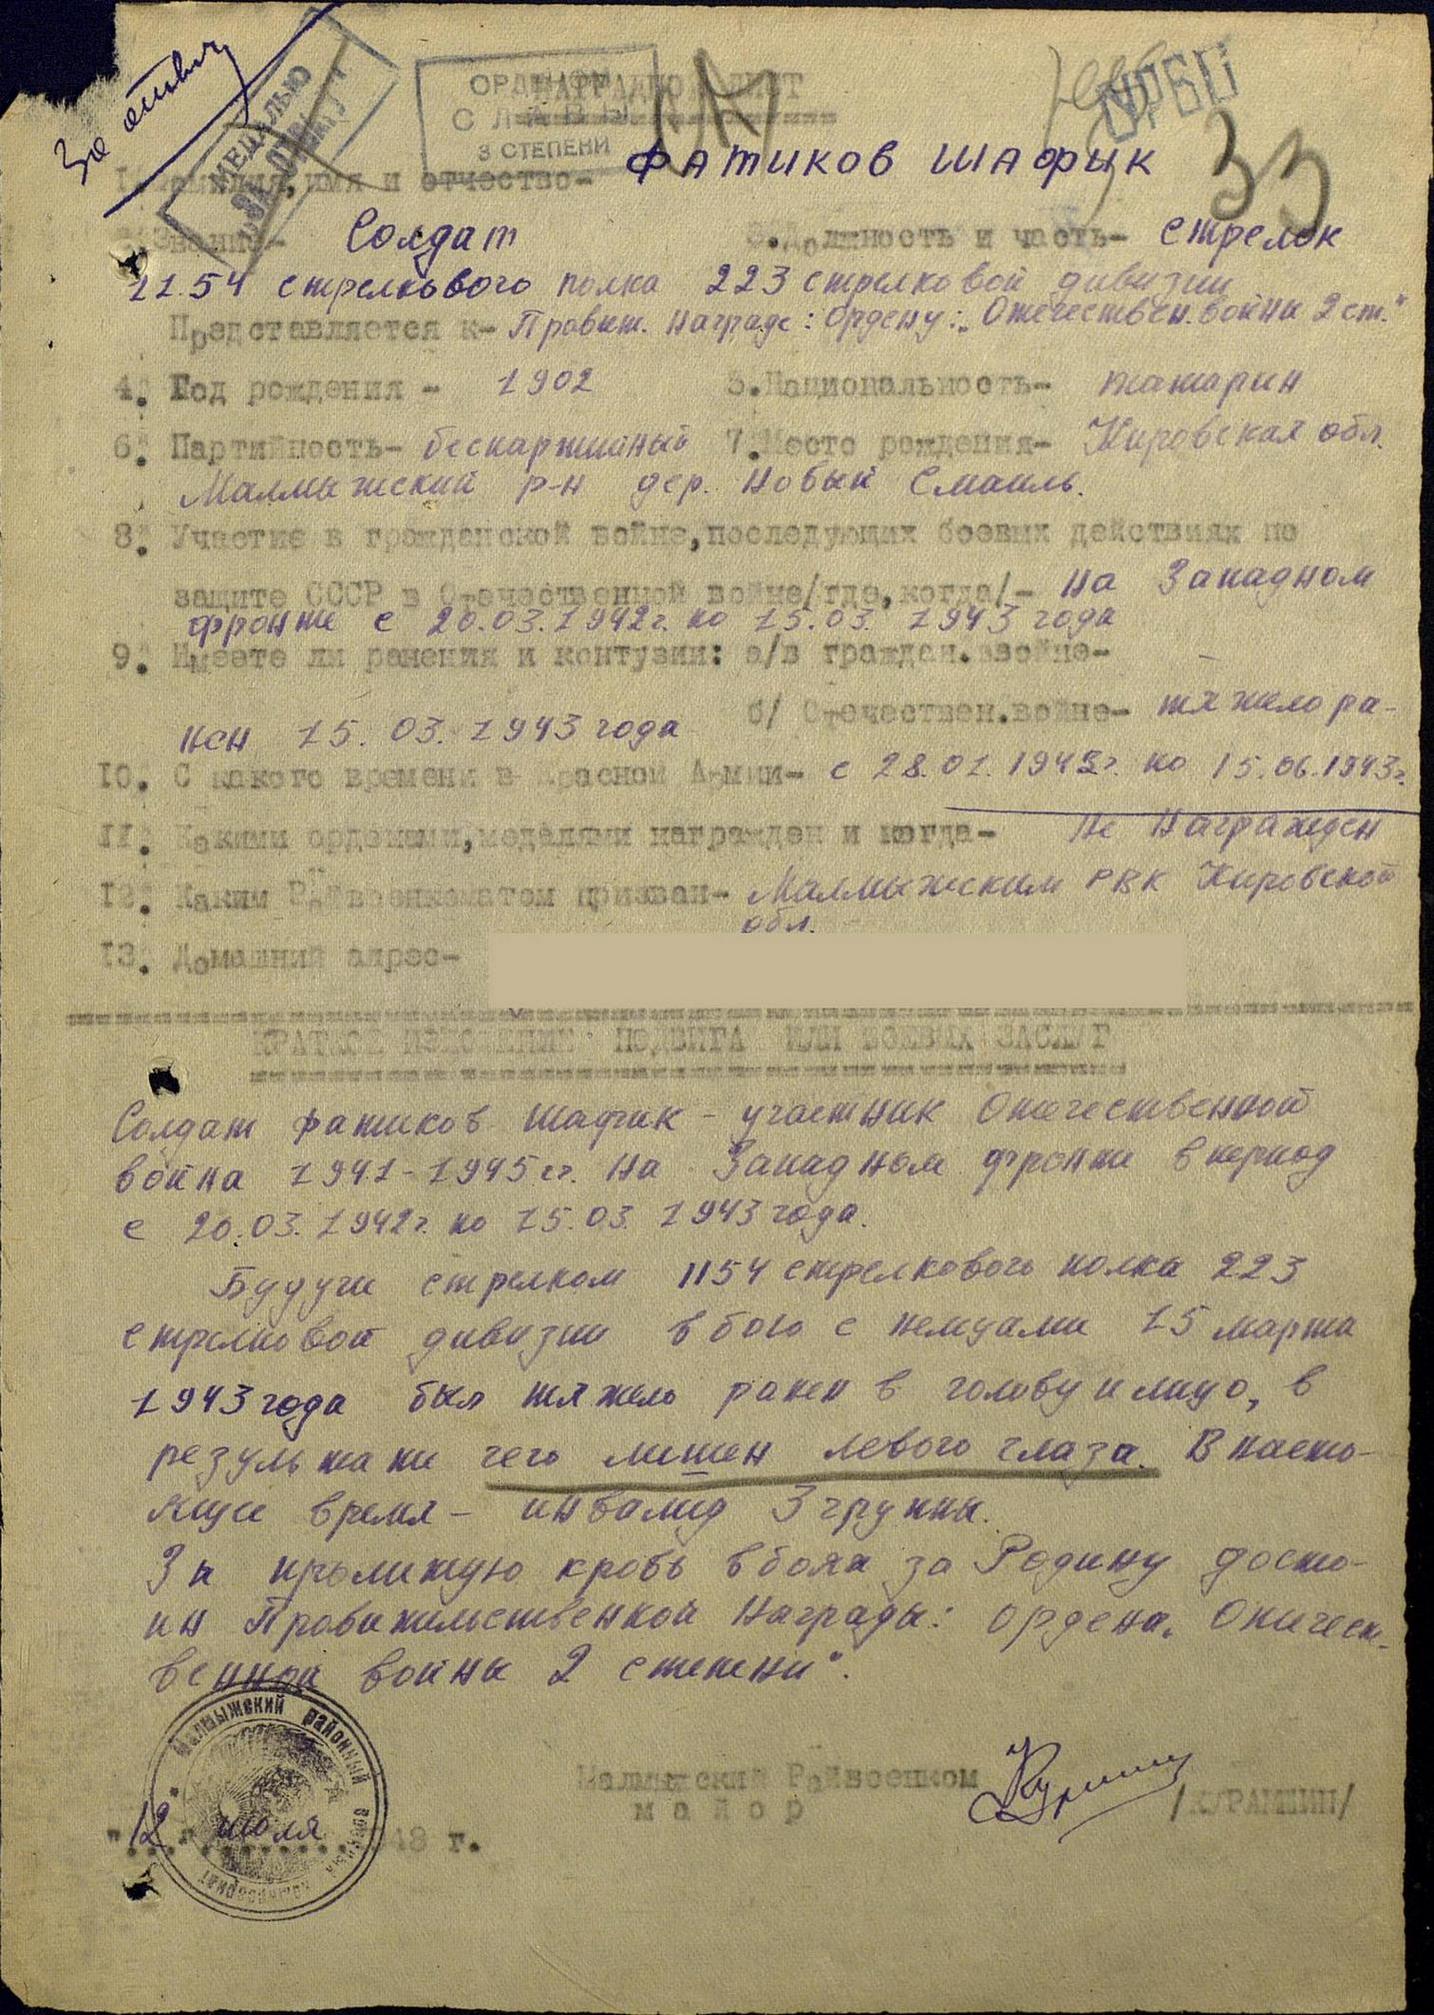 За отвагу
МЕДАЛЬЮ
ЗА ОТВАГУ
ОРДЕНОМ
СЛАВЫ
3 СТЕПЕНИ
НАГРАДНОЙ ЛИСТ
УРБП
33
1. Фамилия, имя и отчество- Фатиков Шафык
2. Звание- Солдат 3. Должность и часть- стрелок
1154 стрелкового полка 223 стрелковой дивизии
Представляется к- Правит. Награде: Ордену: „Отечествен. войны 2 ст."
4. Год рождения - 1902 5. Национальность- татарин
6. Партийность- беспартийный 7. Место рождения- Кировская обл.
Малмыжский р-н дер. Новый Смаиль.
8. Участие в гражданской войне, последующих боевых действиях по
защите СССР в Отечественной войне/где, когда/- На Западном
фронте с 20.03.1942 г. по 15.03.1943 года
9. Имеете ли ранения и контузии: а/в граждан. войне- –
б/ Отечествен. войне- тяжело ра-
нен 15.03.1943 года
10. С какого времени в Красной Армии- с 28.01.1942 г. по 15.06.1943 г.
11. Какими орденами, медалями награжден и когда- Не Награжден
12. Каким Райвоенкоматом призван- Малмыжским РВК Кировской
обл.
13. Домашний адрес-
КРАТКОЕ ИЗЛОЖЕНИЕ ПОДВИГА ИЛИ БОЕВЫХ ЗАСЛУГ
Солдат Фатиков Шафик - участник Отечественной
война 1941-1945 гг. На Западном фронте в период
с 20.03.1942 г. по 15.03.1943 года.
Будучи стрелком 1154 стрелкового полка 223
стрелковой дивизии в бою с немцами 15 марта
1943 года был тяжело ранен в голову и лицо, в
результате чего лишен левого глаза. В насто-
ящее время - инвалид 3 группы.
За пролитую кровь в боях за Родину досто-
ин Правительственной Награды: Ордена „Отечест-
венной войны 2 степени".
Малмыжский районный военный комиссариат
Малмыжский Райвоенком
майор /КУРАМШИН/
"12" июля 1948 г.